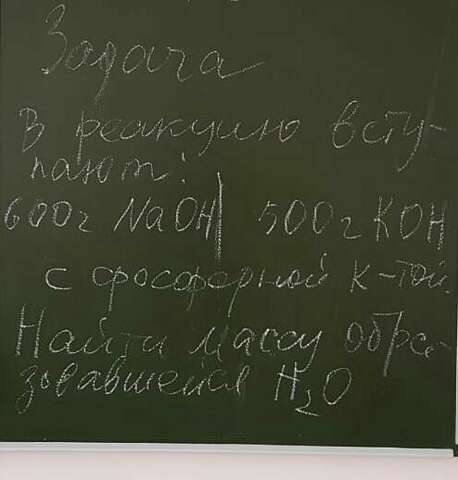 Задача
В реакцию всту-
пают:
600г NaOH | 500г KOH
с фосфорной к-той.
Найти массу обра-
зовавшейся H₂O